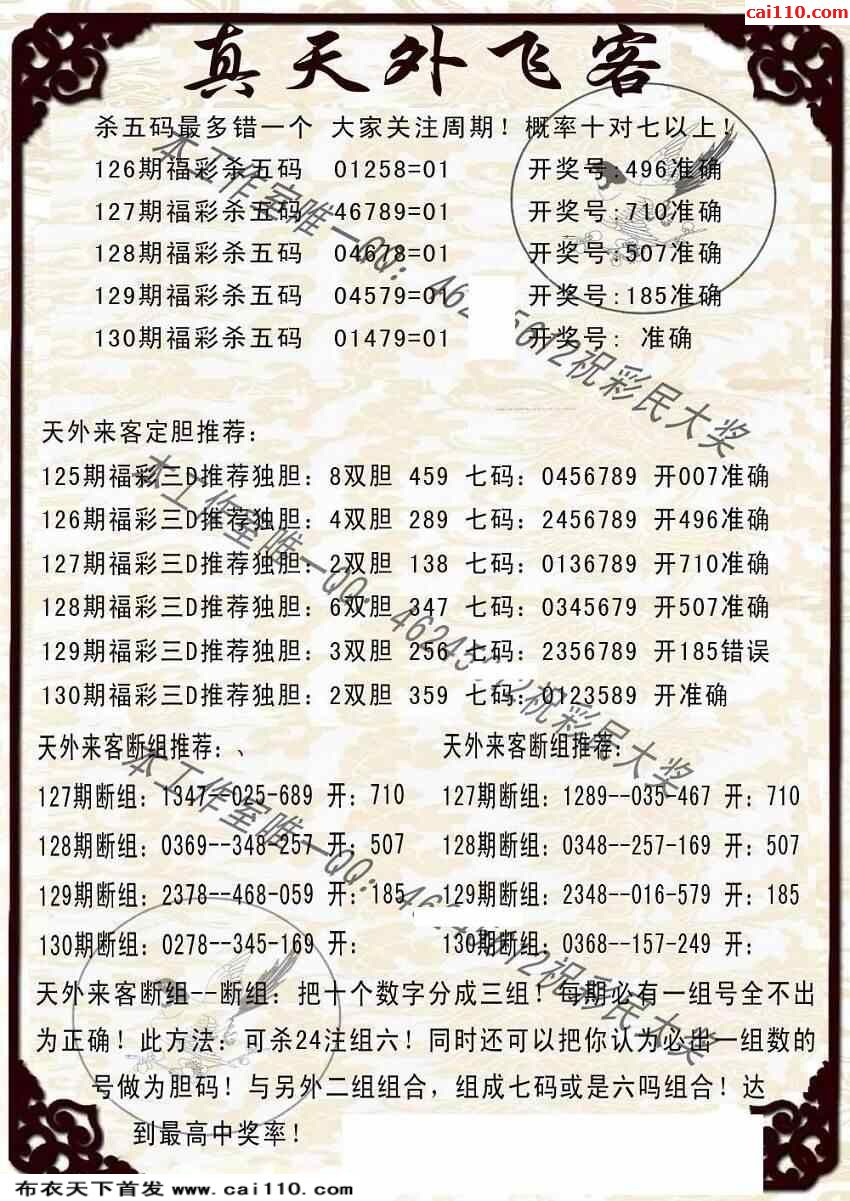 cai110.com
真天外飞客
杀五码最多错一个 大家关注周期! 概率十对七以上!
126期福彩杀五码 01258=01 开奖号:496准确
127期福彩杀五码 46789=01 开奖号:710准确
128期福彩杀五码 04678=01 开奖号:507准确
129期福彩杀五码 04579=01 开奖号:185准确
130期福彩杀五码 01479=01 开奖号: 准确
天外来客定胆推荐:
125期福彩三D推荐独胆: 8双胆 459 七码: 0456789 开007准确
126期福彩三D推荐独胆: 4双胆 289 七码: 2456789 开496准确
127期福彩三D推荐独胆: 2双胆 138 七码: 0136789 开710准确
128期福彩三D推荐独胆: 6双胆 347 七码: 0345679 开507准确
129期福彩三D推荐独胆: 3双胆 256 七码: 2356789 开185错误
130期福彩三D推荐独胆: 2双胆 359 七码: 0123589 开准确
天外来客断组推荐:、
127期断组: 1347--025-689 开: 710
128期断组: 0369--348-257 开: 507
129期断组: 2378--468-059 开: 185
130期断组: 0278--345-169 开:
天外来客断组推荐:
127期断组: 1289--035-467 开: 710
128期断组: 0348--257-169 开: 507
129期断组: 2348--016-579 开: 185
130期断组: 0368--157-249 开:
天外来客断组--断组: 把十个数字分成三组! 每期必有一组号全不出
为正确! 此方法: 可杀24注组六! 同时还可以把你认为必出一组数的
号做为胆码! 与另外二组组合, 组成七码或是六吗组合! 达
到最高中奖率!
本工作室唯一QQ: 祝彩民大奖
本工作室唯一QQ: 祝彩民大奖
本工作室唯一QQ: 祝彩民大奖
布衣天下首发 www.cai110.com